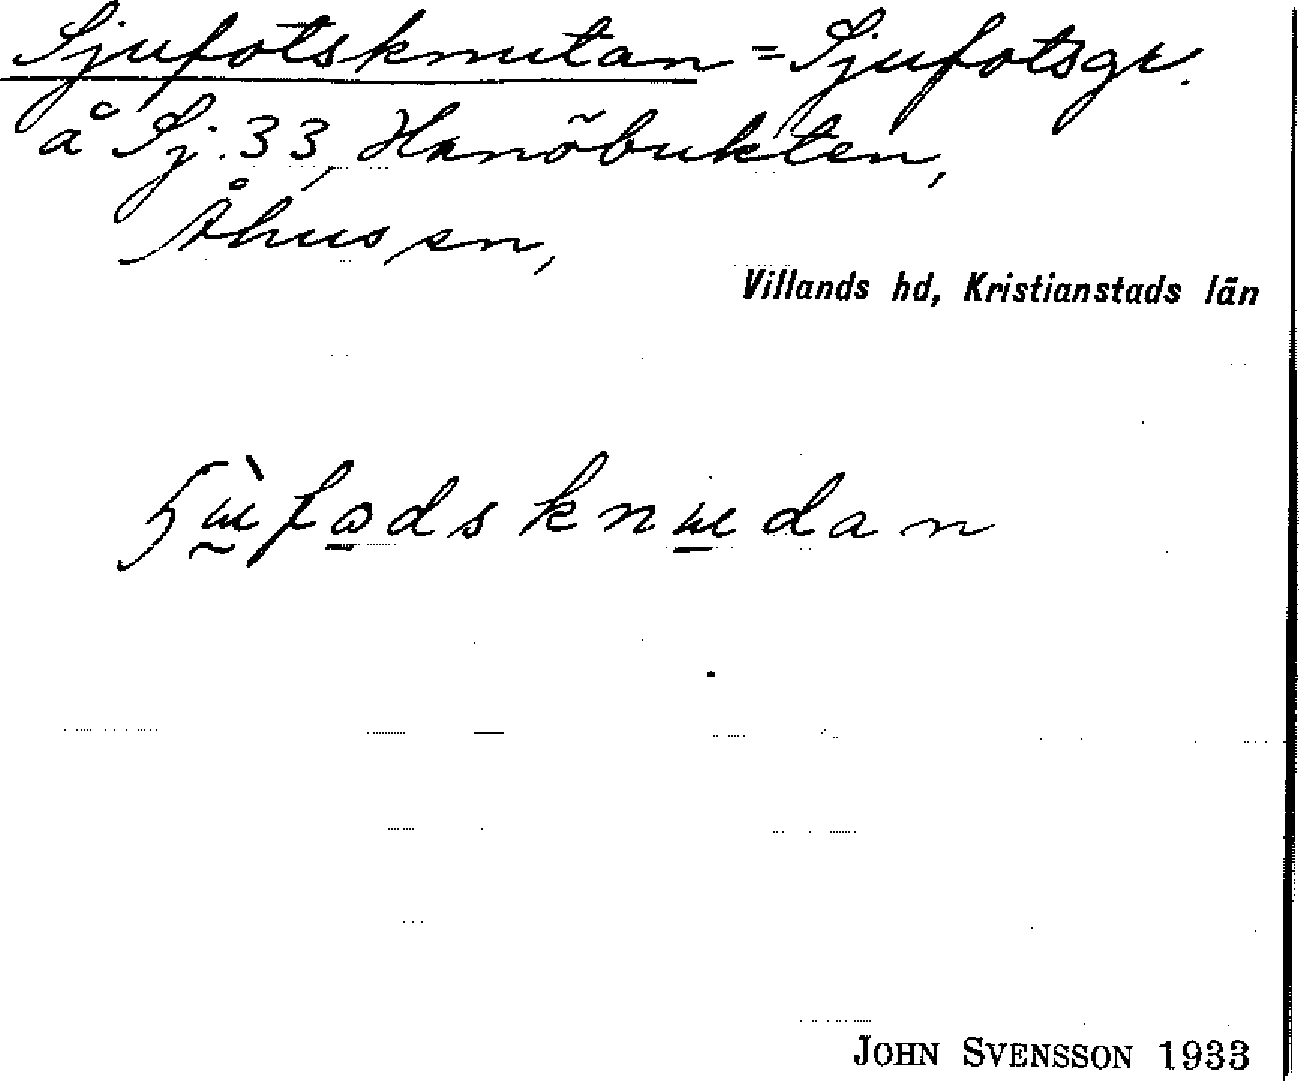 Sjufotsknutan = Sjufotsgr.
å Sj. 33, Hanöbukten,
Åhus sn,
Villands hd, Kristianstads län
JOHN SVENSSON 1933